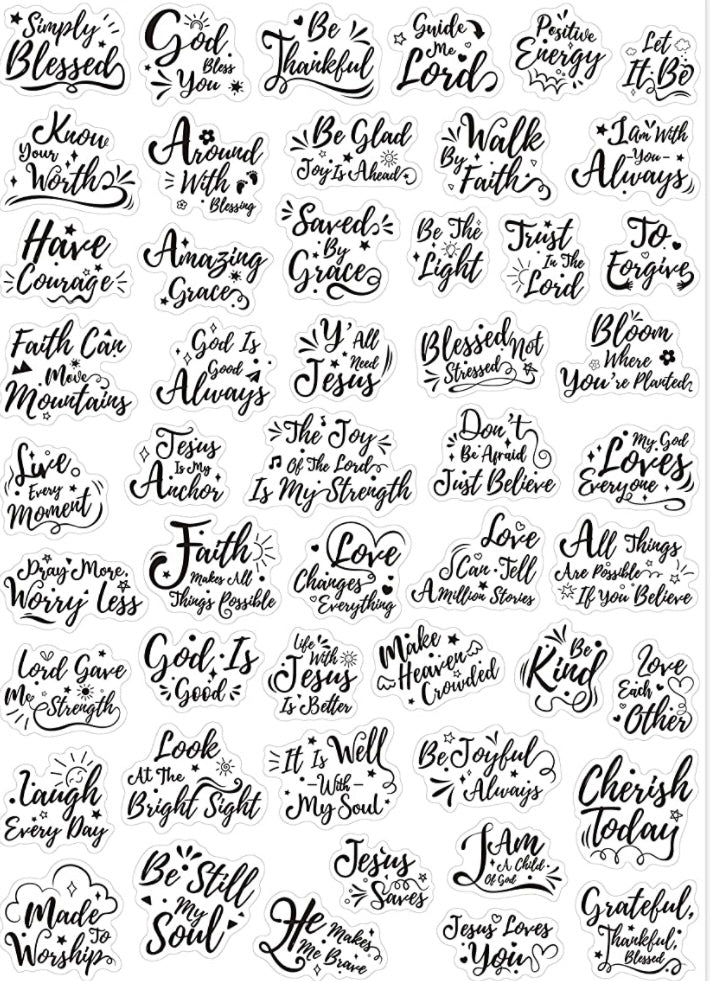 Simply
Blessed
God
Bless
You
Be
Thankful
Guide
Me
Lord
Positive
Energy
Let
It Be
Know
Your
Worth
Around
With
Blessing
Be Glad
Joy Is Ahead
Walk
By
Faith
I am With
-You-
Always
Have
Courage
Amazing
Grace
Saved
By
Grace
Be The
Light
Trust
In The
Lord
To
Forgive
Faith Can
Move
Mountains
God Is
Good
Always
Y' All
Need
Jesus
Blessed Not
Stressed
Bloom
Where
You're Planted
Live
Every
Moment
Jesus
Is My
Anchor
The Joy
Of The Lord
Is My Strength
Don't
Be Afraid
Just Believe
My God
Loves
Everyone
Pray More,
Worry Less
Faith
Makes All
Things Possible
Love
Changes
Everything
Love
I Can Tell
A Million Stories
All Things
Are Possible
If You Believe
Lord Gave
Me Strength
God Is
Good
Life
With
Jesus
Is Better
Make
Heaven
Crowded
Be
Kind
Love
Each
Other
Laugh
Every Day
Look
At The
Bright Sight
It Is Well
-With-
My Soul
Be Joyful
Always
Cherish
Today
Made
To
Worship
Be Still
My
Soul
Jesus
Saves
He Makes
Me Brave
I Am
A Child
Of God
Jesus Loves
You
Grateful,
Thankful,
Blessed